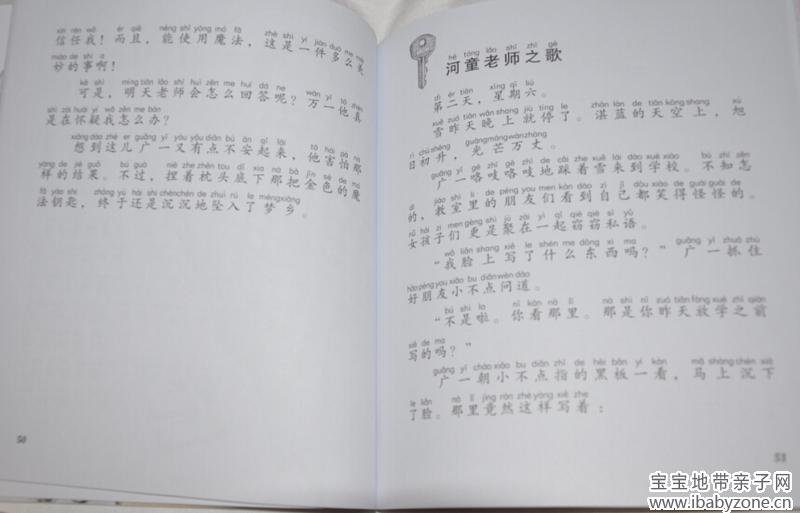 xìn rèn wǒ ér qiě néng shǐ yòng mó fǎ zhè shì yí jiàn duō me měi
信任我！而且，能使用魔法，这是一件多么美
miào de shì a
妙的事啊！
kě shì míng tiān lǎo shī huì zěn me huí dá ne wàn yī tā zhēn
可是，明天老师会怎么回答呢？万一他真
shì zài huái yí wǒ zěn me bàn
是在怀疑我怎么办？
xiǎng dào zhè ér guǎng yī yòu yǒu diǎn bù ān qǐ lái tā hài pà nà
想到这儿广一又有点不安起来，他害怕那
yàng de jié guǒ bú guò niē zhe zhěn tou dǐ xia nà bǎ jīn sè de mó
样的结果。不过，捏着枕头底下那把金色的魔
fǎ yào shi zhōng yú hái shi chén chén de zhuì rù le mèng xiāng
法钥匙，终于还是沉沉地坠入了梦乡。
50
hé tóng lǎo shī zhī gē
河童老师之歌
dì èr tiān xīng qī liù
第二天，星期六。
xuě zuó tiān wǎn shang jiù tíng le zhàn lán de tiān kōng shang xù
雪昨天晚上就停了。湛蓝的天空上，旭
rì chū shēng guāng máng wàn zhàng
日初升，光芒万丈。
guǎng yī gē zhī gē zhī de cǎi zhe xuě lái dào xué xiào bù zhī zěn
广一咯吱咯吱地踩着雪来到学校。不知怎
dì jiào shì li de péng you men kàn dào zì jǐ dōu xiào de guài guài de
的，教室里的朋友们看到自己都笑得怪怪的。
nǚ hái zi men gèng shì jù zài yì qǐ qiè qiè sī yǔ
女孩子们更是聚在一起窃窃私语。
wǒ liǎn shang xiě le shén me dōng xi ma guǎng yī zhuā zhù
“我脸上写了什么东西吗？”广一抓住
hǎo péng you xiǎo bu diǎn wèn dào
好朋友小不点问道。
bú shì la nǐ kàn nà lǐ nà shì nǐ zuó tiān fàng xué zhī qián
“不是啦。你看那里。那是你昨天放学之前
xiě de ma
写的吗？”
guǎng yī cháo xiǎo bu diǎn zhǐ de hēi bǎn yí kàn mǎ shàng chén xià
广一朝小不点指的黑板一看，马上沉下
le liǎn nà lǐ jìng rán zhè yàng xiě zhe
了脸。那里竟然这样写着：
51
宝宝地带亲子网
www.ibabyzone.cn